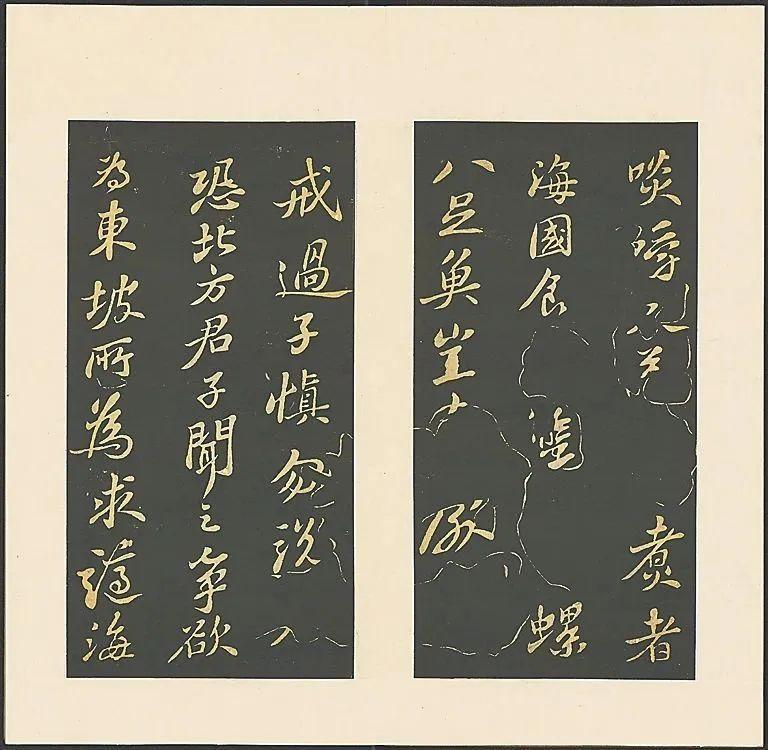 啖嚼又益煮者
海國食蟹螺
八足魚豈厭
戒過子慎勿說
恐北方君子聞之爭欲
為東坡所為求謫海